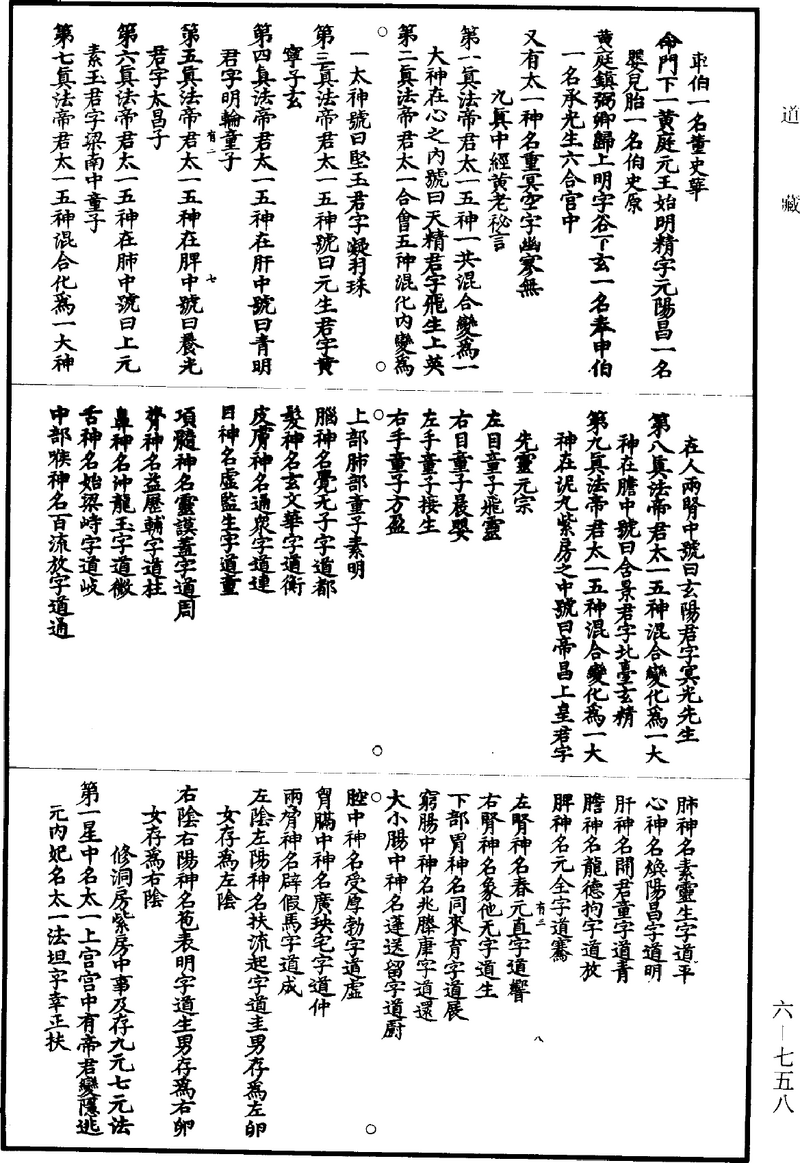 道藏
耴伯一名董史華
命門下一黃庭元王始明精字元陽昌一名
嬰兒胎一名伯史原
黃庭鎮弼卿歸上明字谷下玄一名奉申伯
一名承光生六合宮中
又有太一神名重冥空字幽寥無
九真中經黃老秘言
第一真法帝君太一五神一共混合變為一
大神在心之內號曰天精君字飛生上英
第二真法帝君太一合會五神混化內變為
一太神號曰堅玉君字凝羽珠
第三真法帝君太一五神號曰元生君字黃
寧子玄
第四真法帝君太一五神在肝中號曰青明
君字明輪童子
有二 七
第五真法帝君太一五神在脾中號曰養光
君字太昌子
第六真法帝君太一五神在肺中號曰上元
素玉君字梁南中童子
第七真法帝君太一五神混合化為一大神
在人兩腎中號曰玄陽君字冥光先生
第八真法帝君太一五神混合變化為一大
神在膽中號曰含景君字北臺玄精
第九真法帝君太一五神混合變化為一大
神在泥丸紫房之中號曰帝昌上皇君字
先靈元宗
左目童子飛靈
右目童子晨嬰
左手童子接生
右手童子方盈
上部肺部童子素明
腦神名覺无子字道都
髮神名玄文華字道衡
皮膚神名通眾字道連
目神名虛監生字道童
項髓神名靈謨蓋字道周
膂神名益歷輔字道柱
鼻神名沖龍玉字道微
舌神名始梁峙字道岐
中部喉神名百流放字道通
肺神名素靈生字道平
心神名煥陽昌字道明
肝神名開君童字道青
膽神名龍德拘字道放
脾神名元全字道騫
有二 八
左腎神名春元直字道響
右腎神名象他无字道生
下部胃神名同來育字道展
窮腸中神名兆滕康字道還
大小腸中神名蓬送留字道廚
腔中神名受厚勃字道虛
胃膈中神名廣瑛宅字道仲
兩脅神名辟假馬字道成
左陰左陽神名扶流起字道圭男存為左卵
女存為左陰
右陰右陽神名苞表明字道生男存為右卵
女存為右陰
修洞房紫房中事及存九元七元法
第一星中名太一上宮宮中有帝君變隱逃
元內妃名太一法坦字幸正扶
六－七五八